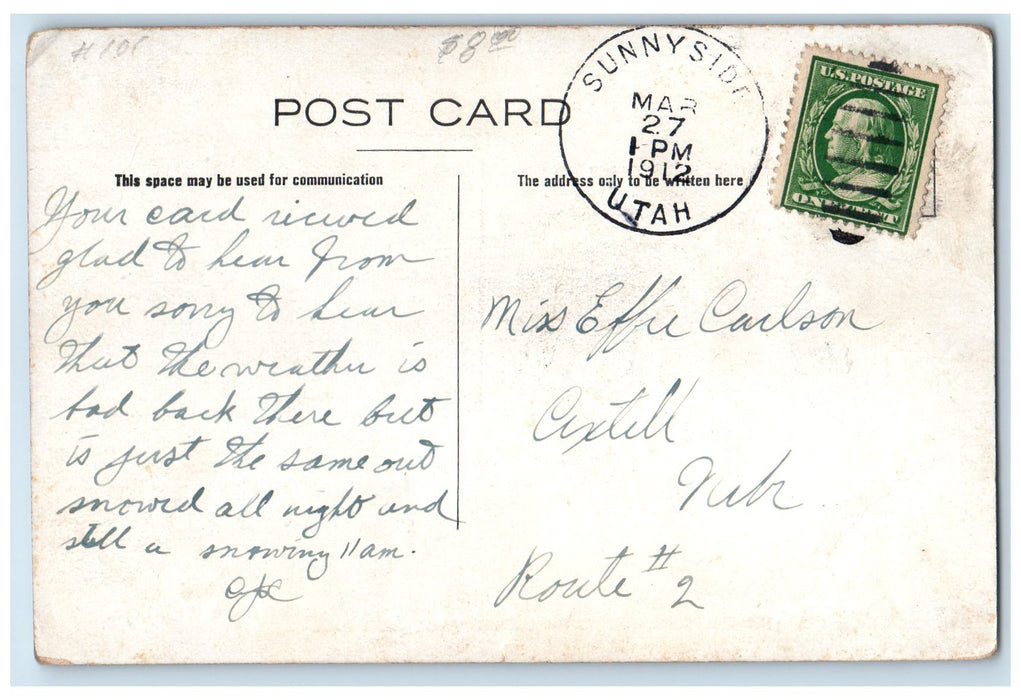 # 101
$8.00
POST CARD
This space may be used for communication
The address only to be written here
SUNNYSIDE
MAR
27
1 PM
1912
UTAH
U.S. POSTAGE
ONE CENT
Your card recieved
glad to hear from
you sorry to hear
that the weather is
bad back there but
is just the same out
snowed all night and
still a snowing 11 am.
Miss Effie Carlson
Axtell
Nebr
Route #2